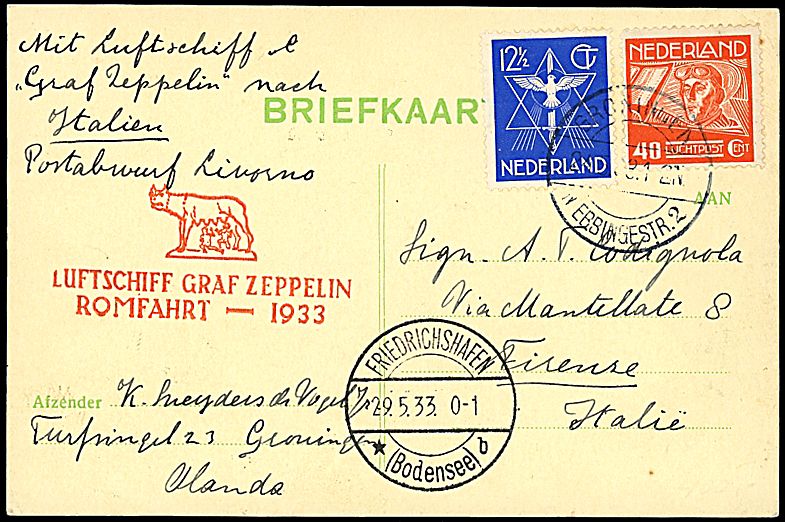 Mit Luftschiff
"Graf Zeppelin" nach
Italien
Postabwurf Livorno
BRIEFKAAR
12½ CT
NEDERLAND
NEDERLAND
40 LUCHTPOST CENT
EBBINGESTR. 2
AAN
LUFTSCHIFF GRAF ZEPPELIN
ROMFAHRT — 1933
Sign. A. T. Codignola
Via Mantellate 8
Firenze
Italië
FRIEDRICHSHAFEN
29.5.33. 0-1
★ (Bodensee) b
Afzender K. Sneyders de Vogel
Turfsingel 23 Groningen
Olanda